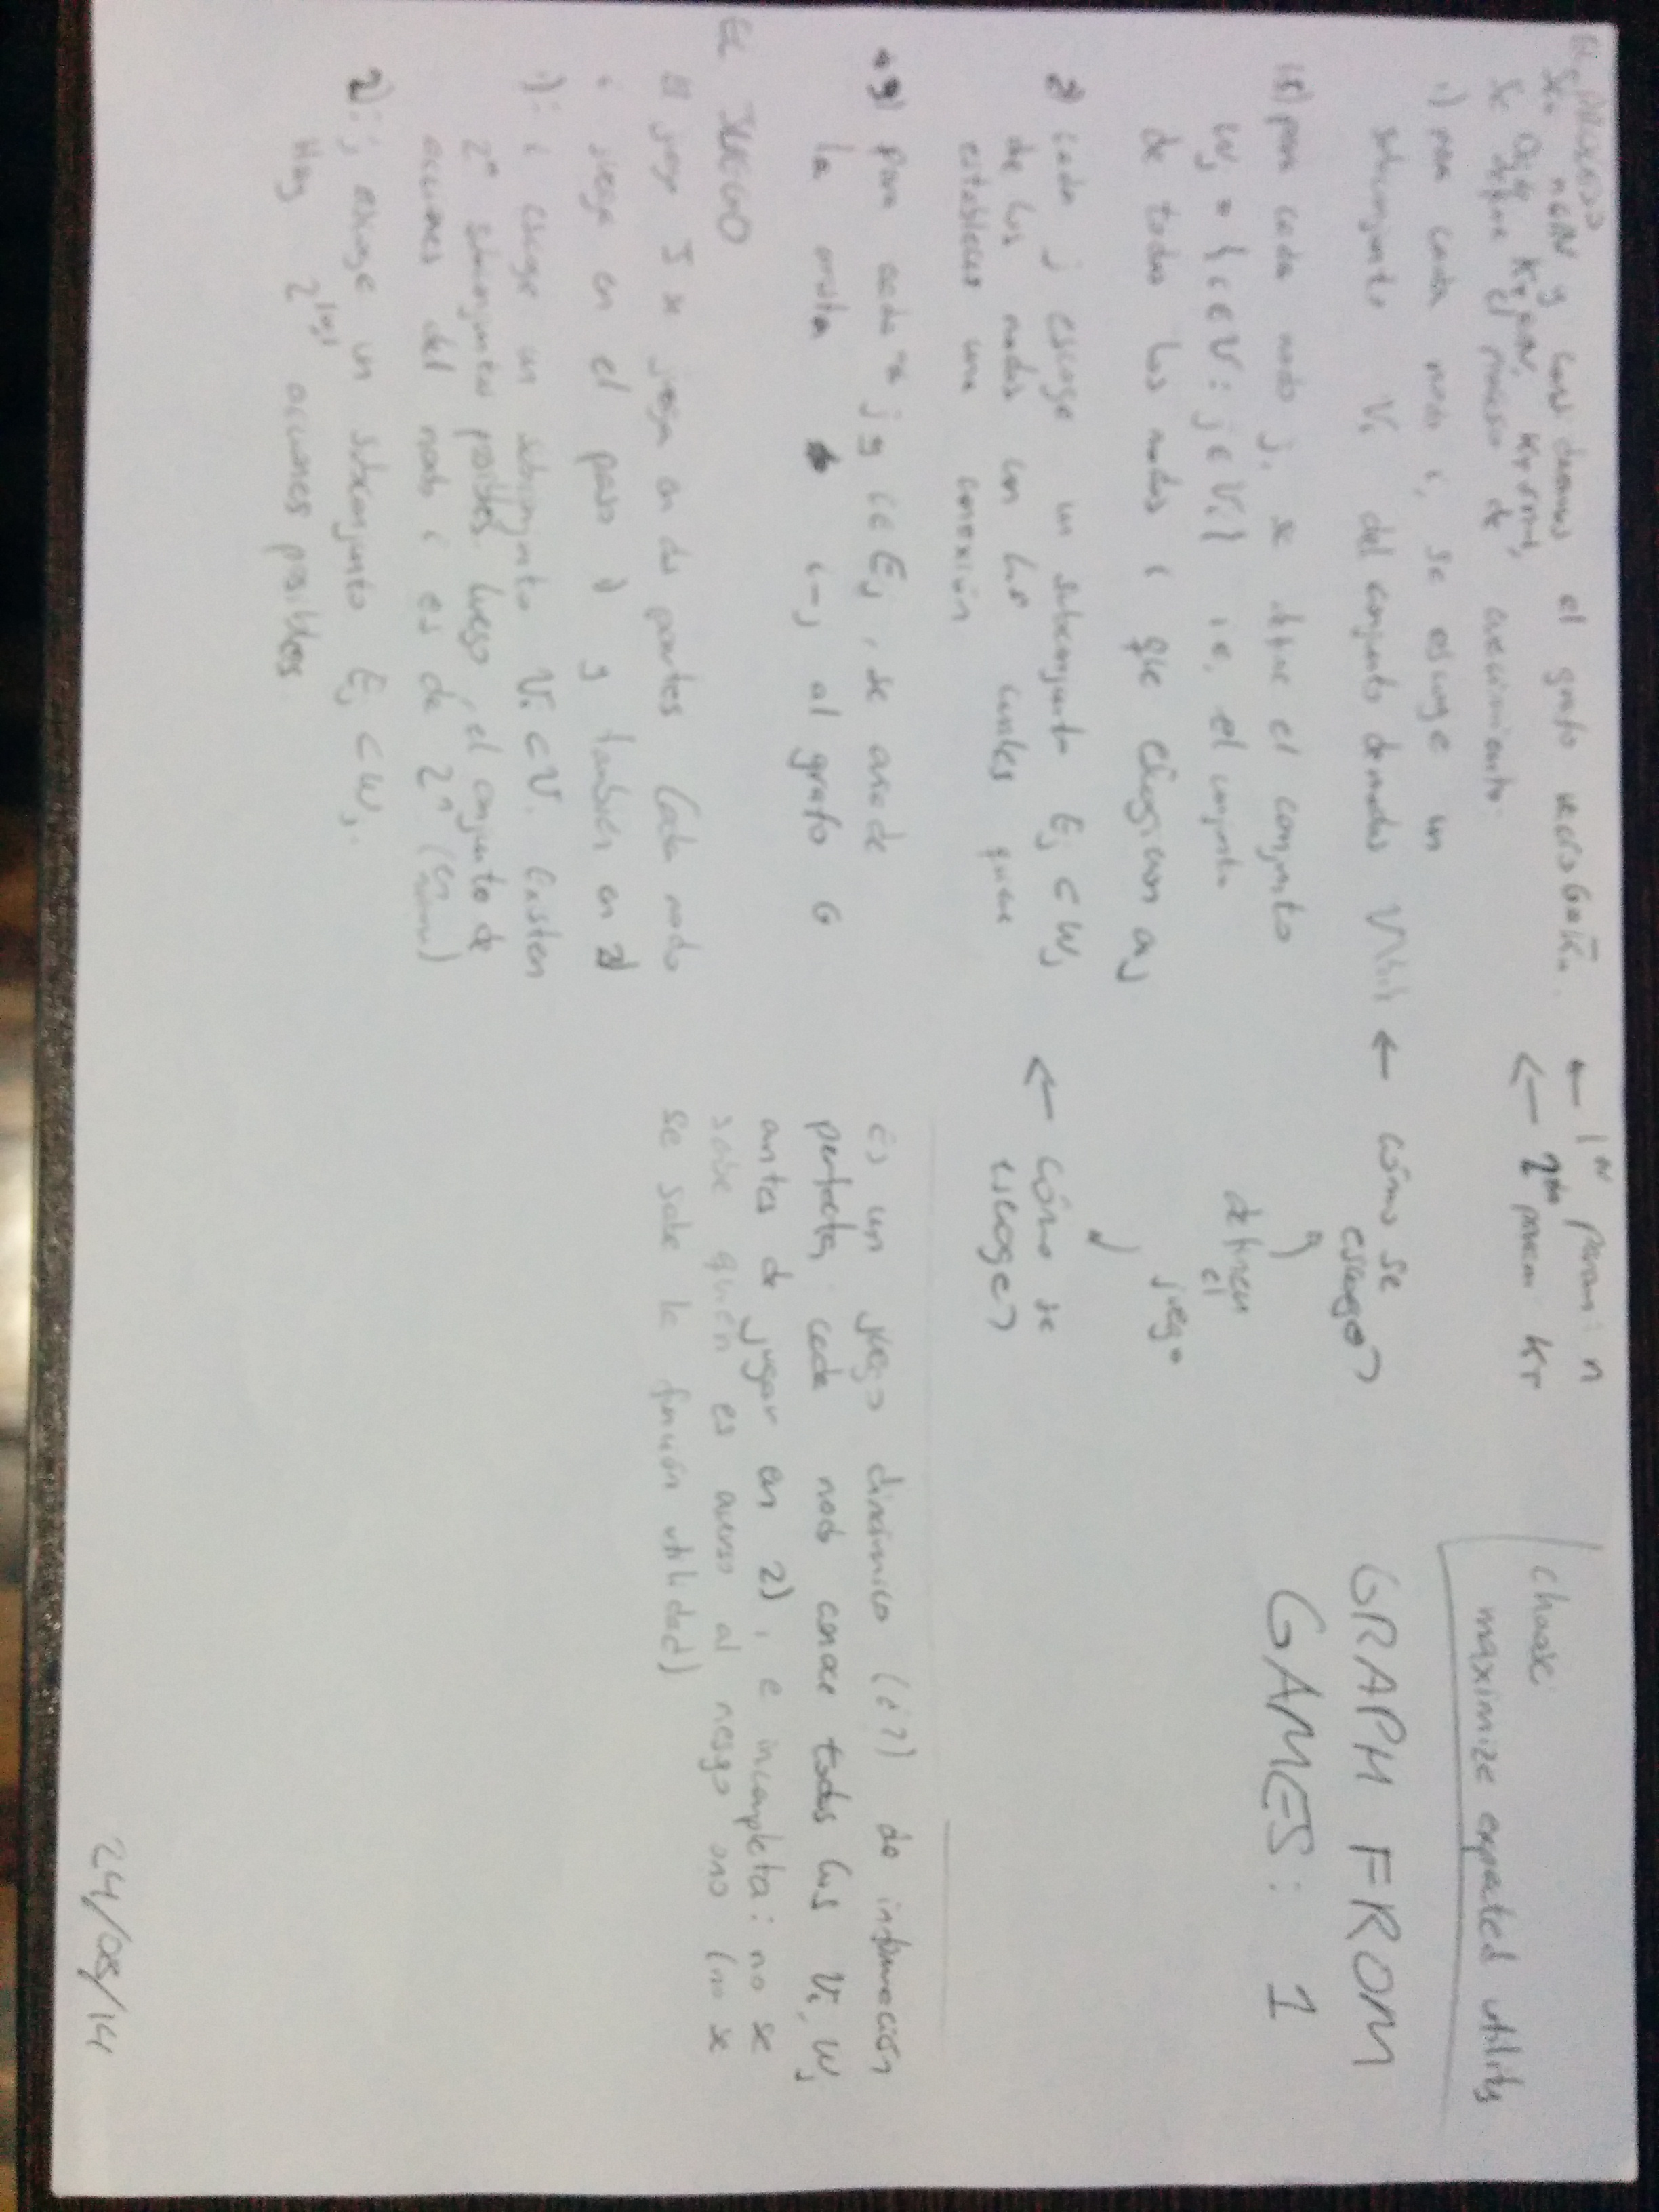 EL PROCESO
Sea n∈ℕ y consideramos el grafo vacío G=K̄n.
Se define el proceso de crecimiento:
1) para cada nodo i, se escoge un
subconjunto Vi del conjunto de nodos V\{i} ← cómo se
escoge?
1.5) para cada nodo j, se define el conjunto
Wj = {i∈V : j∈Vi} i.e, el conjunto
de todos los nodos i que eligieron a j
definen
el
juego
2) Cada j escoge un subconjunto Ej ⊂ Wj
de los nodos con los cuales quiere
establecer una conexión
← cómo se
escoge?
3) Para cada j y i∈Ej, se añade
la arista i-j al grafo G
EL JUEGO
El juego se juega en dos partes. Cada nodo
i juega en el paso 1) y también en 2)
1): i escoge un subconjunto Vi ⊂ V. Existen
2ⁿ subconjuntos posibles, luego, el conjunto de
acciones del nodo i es de 2ⁿ
2): j escoge un subconjunto Ej ⊂ Wj.
Hay 2^|Wj| acciones posibles.
← 1er param: n
← 2do param: KT
choose:
maximize expected utility
GRAPH FROM
GAMES: 1
es un juego dinámico (¿?) de información
perfecta: cada nodo conoce todos los Vi, Wj
antes de jugar en 2), e incompleta: no se
sabe quién es averso al riesgo o no (no se
se sabe la función utilidad)
24/08/14